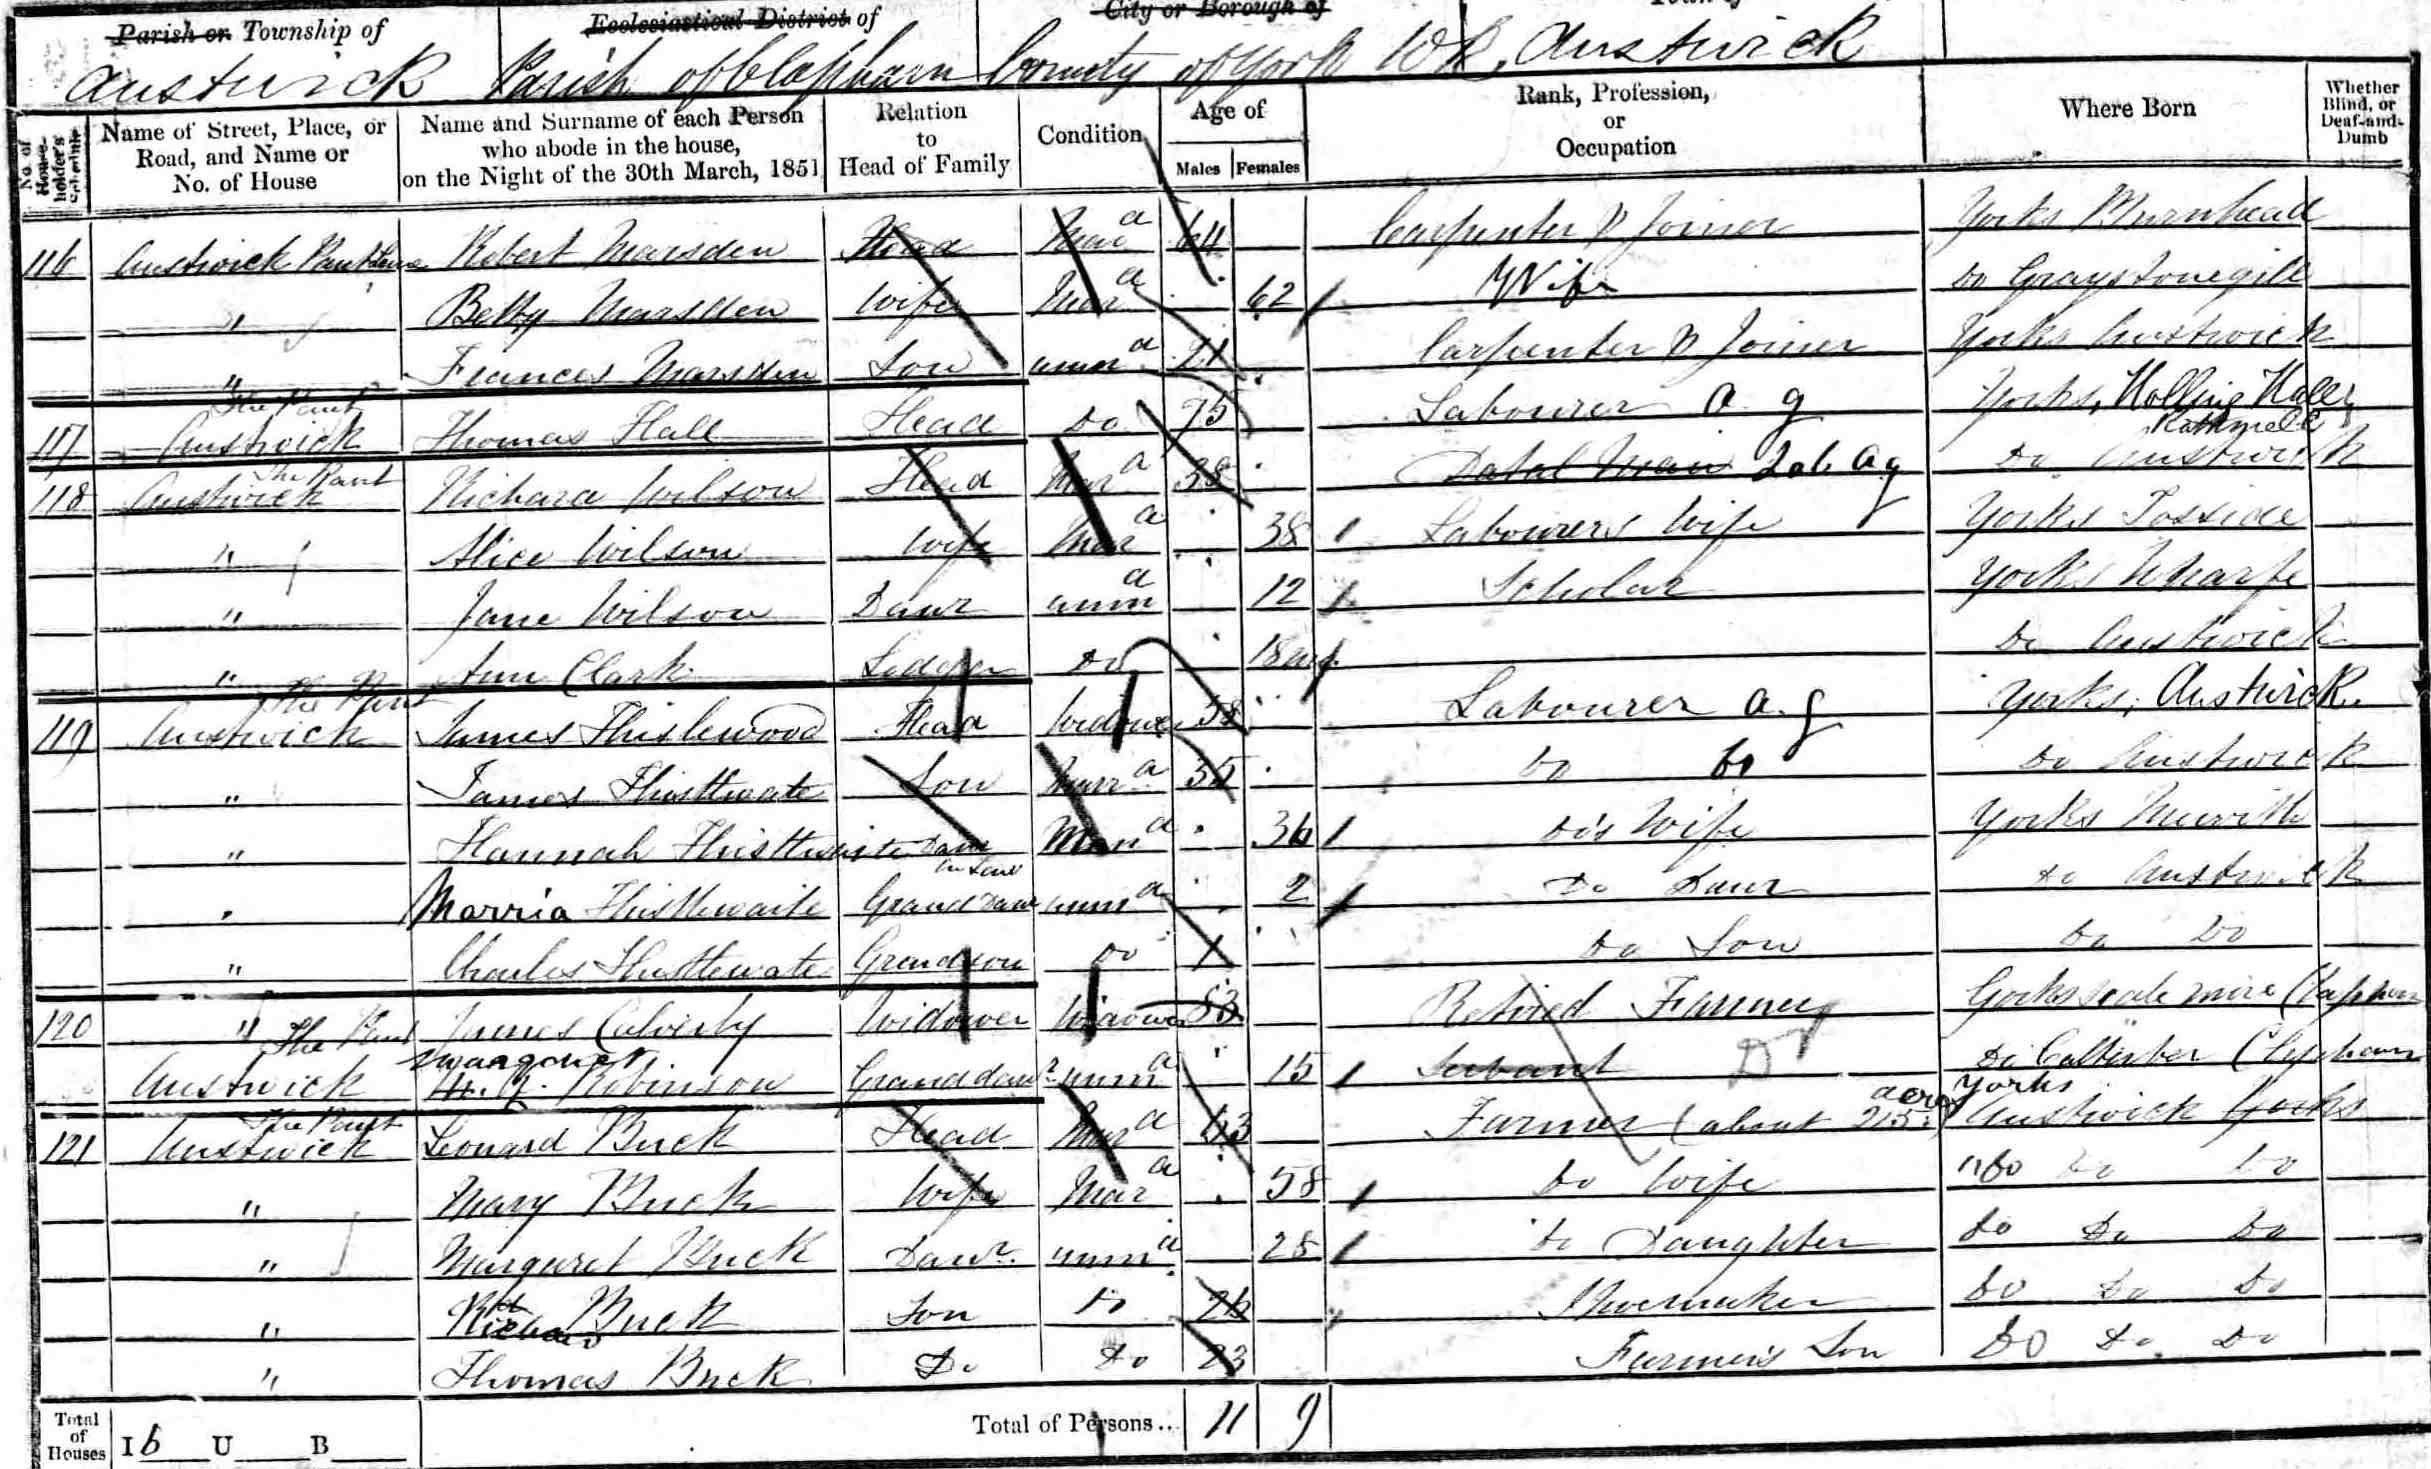 Parish or Township of Ecclesiastical District of City or Borough of Town of
Austwick Parish of Clapham County of York W R, Austwick
No. of Householder's Schedule
Name of Street, Place, or Road, and Name or No. of House
Name and Surname of each Person who abode in the house, on the Night of the 30th March, 1851
Relation to Head of Family
Condition
Age of
Males Females
Rank, Profession, or Occupation
Where Born
Whether Blind, or Deaf-and-Dumb
116 Austwick Robert Marsden Head Mar 64 Carpenter & Joiner Yorks Burnhead
" Betty Marsden Wife Mar 62 Wife Do Graystonegill
" Frances Marsden Son unm 21 Carpenter & Joiner Yorks Austwick
117 The Pant Austwick Thomas Hall Head Do 75 Labourer a g Yorks, Holling Hall, Rathmell
118 The Pant Austwick Richard Wilson Head Mar 38 Datal Man Lab Ag Do Austwick
" Alice Wilson Wife Mar 38 Labourers Wife Yorks Tosside
" Jane Wilson Daur unm 12 Scholar Yorks Wharfe
" Ann Clark Lodger Do 18 Do Austwick
119 The Pant Austwick James Thislewood Head Widower 58 Labourer a.g Yorks, Austwick
" James Thistlewate Son Marr 35 Do Do Do Austwick
" Hannah Thistlewaite Daur in Law Marr 36 Do's Wife Yorks
" Marria Thistlewaite Grand Daur unm 2 Do Daur Do Austwick
" Charles Thistlewate Grandson Do 1 Do Son Do Do
120 " James Calverly Widower Widower 83 Retired Farmer Yorks Clapham
The Pant Austwick Margaret Robinson Granddaur unm 15 Servant D Do Clapham
121 The Pant Austwick Leonard Buck Head Mar 63 Farmer (about 215 acres) Yorks Austwick Yorks
" Mary Buck Wife Mar 58 Do Wife " Do Do Do
" Margaret Buck Daur. unm 28 Do Daughter Do Do Do
" Richard Buck Son Do 26 Shoemaker Do Do Do
" Thomas Buck Do Do 23 Farmer's Son Do Do Do
Total of Houses I 6 U B Total of Persons... 11 9